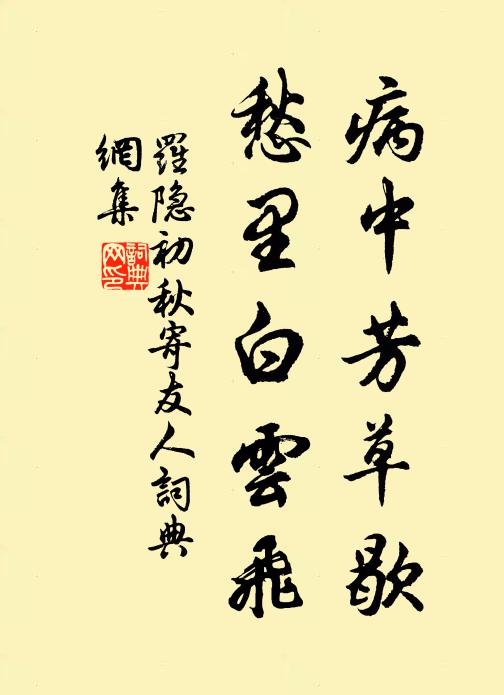 病中芳草歇
愁里白雲飛
羅隐初秋寄友人詞典
網集
詞典
网印